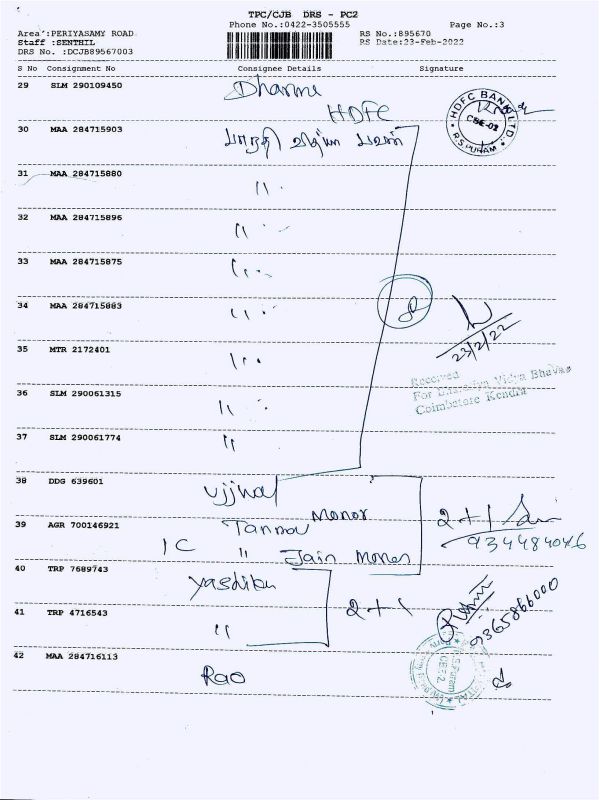 TPC/CJB DRS - PC2
Phone No.:0422-3505555 Page No.:3
Area':PERIYASAMY ROAD RS No.:895670
Staff :SENTHIL RS Date:23-Feb-2022
DRS No. :DCJB89567003
S No Consignment No Consignee Details Signature
29 SLM 290109450 Dhanu
HDFC
HDFC BANK LTD.
CBE-02
R.S. PURAM
30 MAA 284715903 பாரதி வித்யா பவன்
31 MAA 284715880 "
32 MAA 284715896 "
33 MAA 284715875 "
34 MAA 284715883 "
35 MTR 2172401 "
23/2/22
Received
For Bharatiya Vidya Bhavan
Coimbatore Kendra
36 SLM 290061315 "
37 SLM 290061774 "
38 DDG 639601 Ujjwal
Manor
39 AGR 700146921 2 + 1
1 C " Jain Manor
934484046
40 TRP 7689743 Yashika
2 + 1
9365866000
41 TRP 4716543 "
42 MAA 284716113 Rao
R.S.Puram
CBE.2.